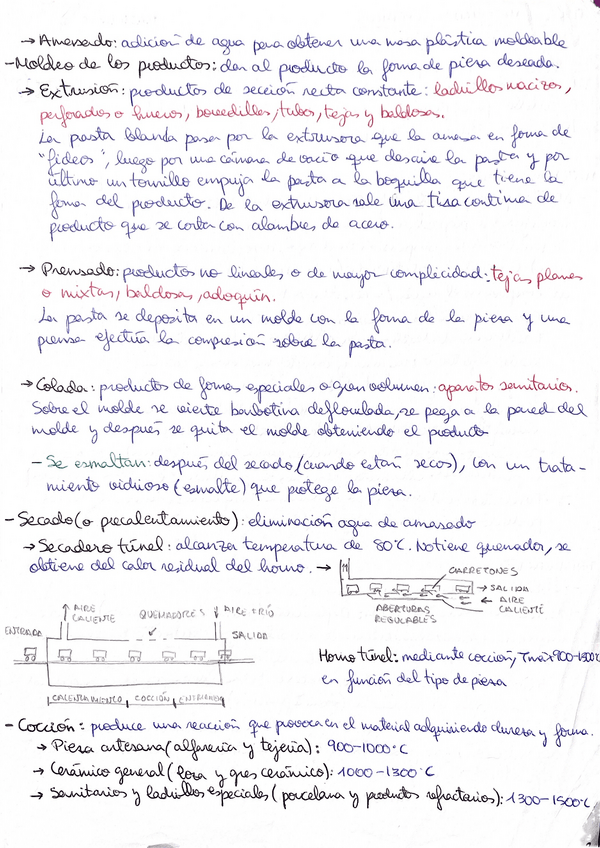 → Amasado: adición de agua para obtener una masa plástica moldeable
- Moldeo de los productos: dar al producto la forma de pieza deseada.
→ Extrusión: productos de sección recta constante: ladrillos macizos,
perforados o huecos, bovedillas, tubos, tejas y baldosas.
La pasta blanda pasa por la extrusora que la amasa en forma de
"fideos", luego por una cámara de vacío que desaire la pasta y por
último un tornillo empuja la pasta a la boquilla que tiene la
forma del producto. De la extrusora sale una tira continua de
producto que se corta con alambres de acero.
→ Prensado: productos no lineales o de mayor complicidad: tejas planas
o mixtas, baldosa, adoquín.
La pasta se deposita en un molde con la forma de la pieza y una
prensa efectúa la compresión sobre la pasta.
→ Colada: productos de formas especiales o gran volumen: aparatos sanitarios.
Sobre el molde se vierte barbotina defloculada, se pega a la pared del
molde y después se quita el molde obteniendo el producto
- Se esmaltan: después del secado (cuando están secos), con un trata-
miento vidrioso (esmalte) que protege la pieza.
- Secado (o precalentamiento): eliminación agua de amasado
→ Secadero túnel: alcanza temperatura de 80°C. No tiene quemador, se
obtiene del calor residual del horno. →
CARRETONES
→ SALIDA
← AIRE
CALIENTE
ABERTURAS
REGULABLES
↑ AIRE
CALIENTE
QUEMADORES
↓ AIRE FRÍO
ENTRADA
SALIDA
CALENTAMIENTO | COCCIÓN |
Horno túnel: mediante cocción, Tmáx 900-1500°C
en función del tipo de pieza
- Cocción: produce una reacción que provoca en el material adquiriendo dureza y forma.
→ Pieza artesana (alfarería y tejería): 900-1000°C
→ Cerámico general (loza y gres cerámico): 1000-1300°C
→ Sanitarios y ladrillos especiales (porcelana y productos refractarios): 1300-1500°C